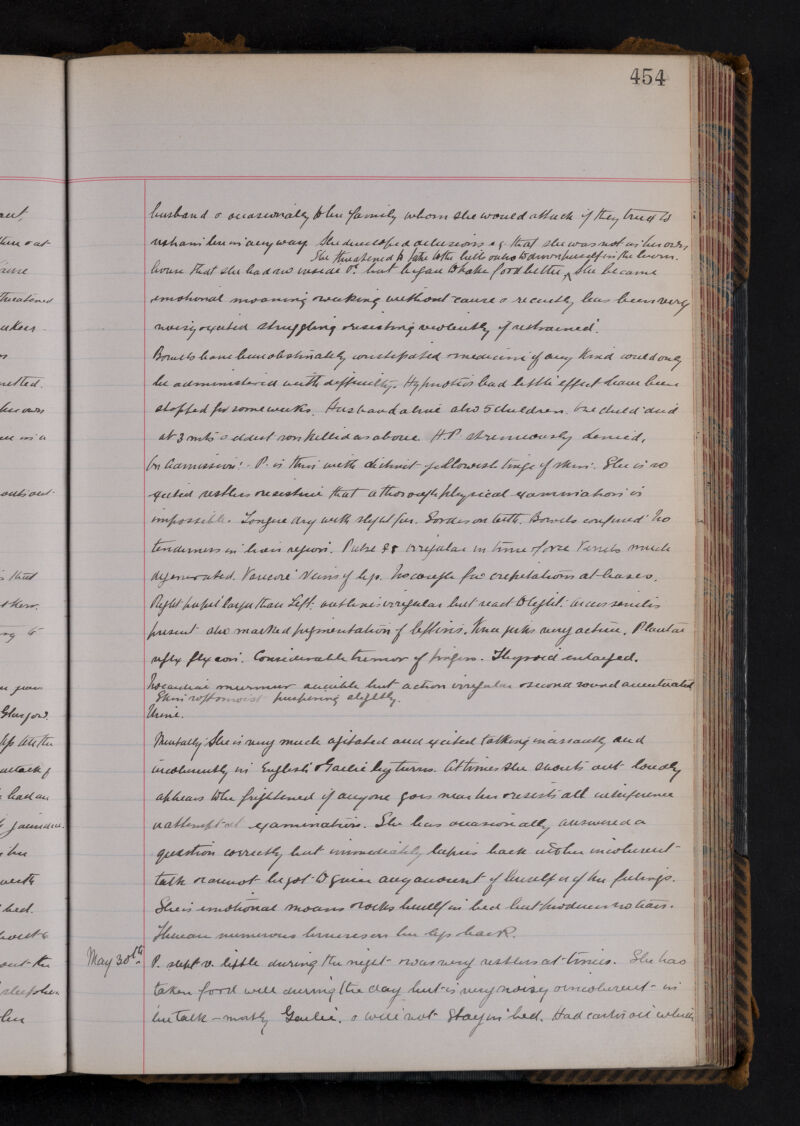 454
husband & occasionally to her family whom she would attack if they tried to
restrain her in any way She developed delusions e.g. that she was not in her own
She threatened to take to the hills or to drown herself in the
house that she had no inside &c. but began to take food better, She became
emotional moaning & without cause & recently has been very
noisy excited struggling & resisting violently if restrained.
Bowels have been obstinately constipated & medicine of any kind could only
be administered with difficulty. Hypnotics had little effect & have been
stopped for some weeks. Husband alive also 5 children. One child died
at 3 mts & adult son killed as above. H.P. strenuously denied.
On Admission: P. is thin with distinct yellowish tinge of skin. She is so
excited restless & resistive that a thorough physical examination is
impossible. Tongue dry with slight fur. Sordes on teeth. Bowels confined No
tenderness in liver region. Pulse 88 irregular in time & force Vessels much
degenerated. Varicose Veins of legs. No cough few crepitations at bases.
Right pupil larger than Left. outline irregular but react to light. arcus senilis
present also marked pigmentation of left iris. Knee jerks very active. Plantar
reflex flexor. Considerable tremor of fingers. Thyroid enlarged.
No cardiac murmur audible but action irregular & second sound accentuated
Skin soft & moist perspiring slightly.
Urine.
Mentally She is very much agitated and excited talking incessantly and
incoherently in English & Gaelic by turns. At times she shouts out loudly
appears to be frightened if anyone goes near her & resists all interference
or attempt at examination. She has occasionally answered a
question correctly but immediately lapses back into her incoherent
talk & cannot be got to give any account of herself or of her feelings.
She is emotional moans & rocks herself in bed but produces no tears.
There are numerous bruises on her legs & back.
May 30th. P. slept v. little during the night & was very restless at times. She has
taken food well during the day but is very noisy & incoherent in
her talk – mostly Gaelic, & will not stay in bed. Had castor oil which